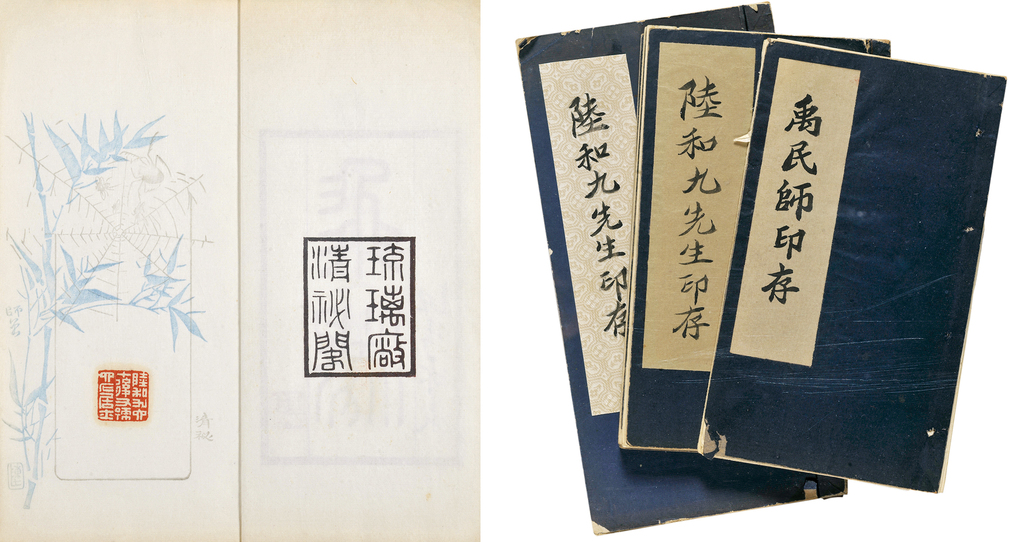 琉璃廠
清祕閣
師曾
清祕
陸和九先生印存
陸和九先生印存
禹民師印存